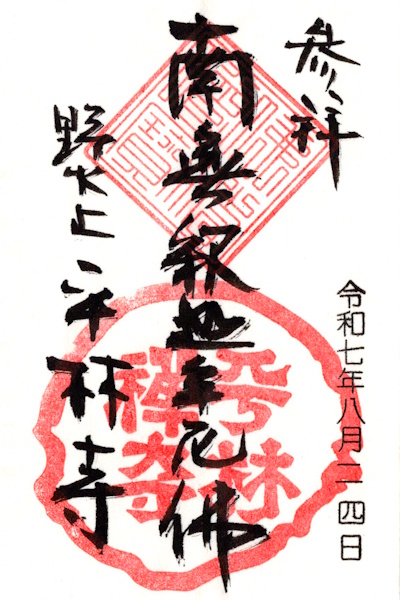 参禅
令和七年八月二四日
南無釈迦牟尼佛
平林
禪寺
野火止平林寺